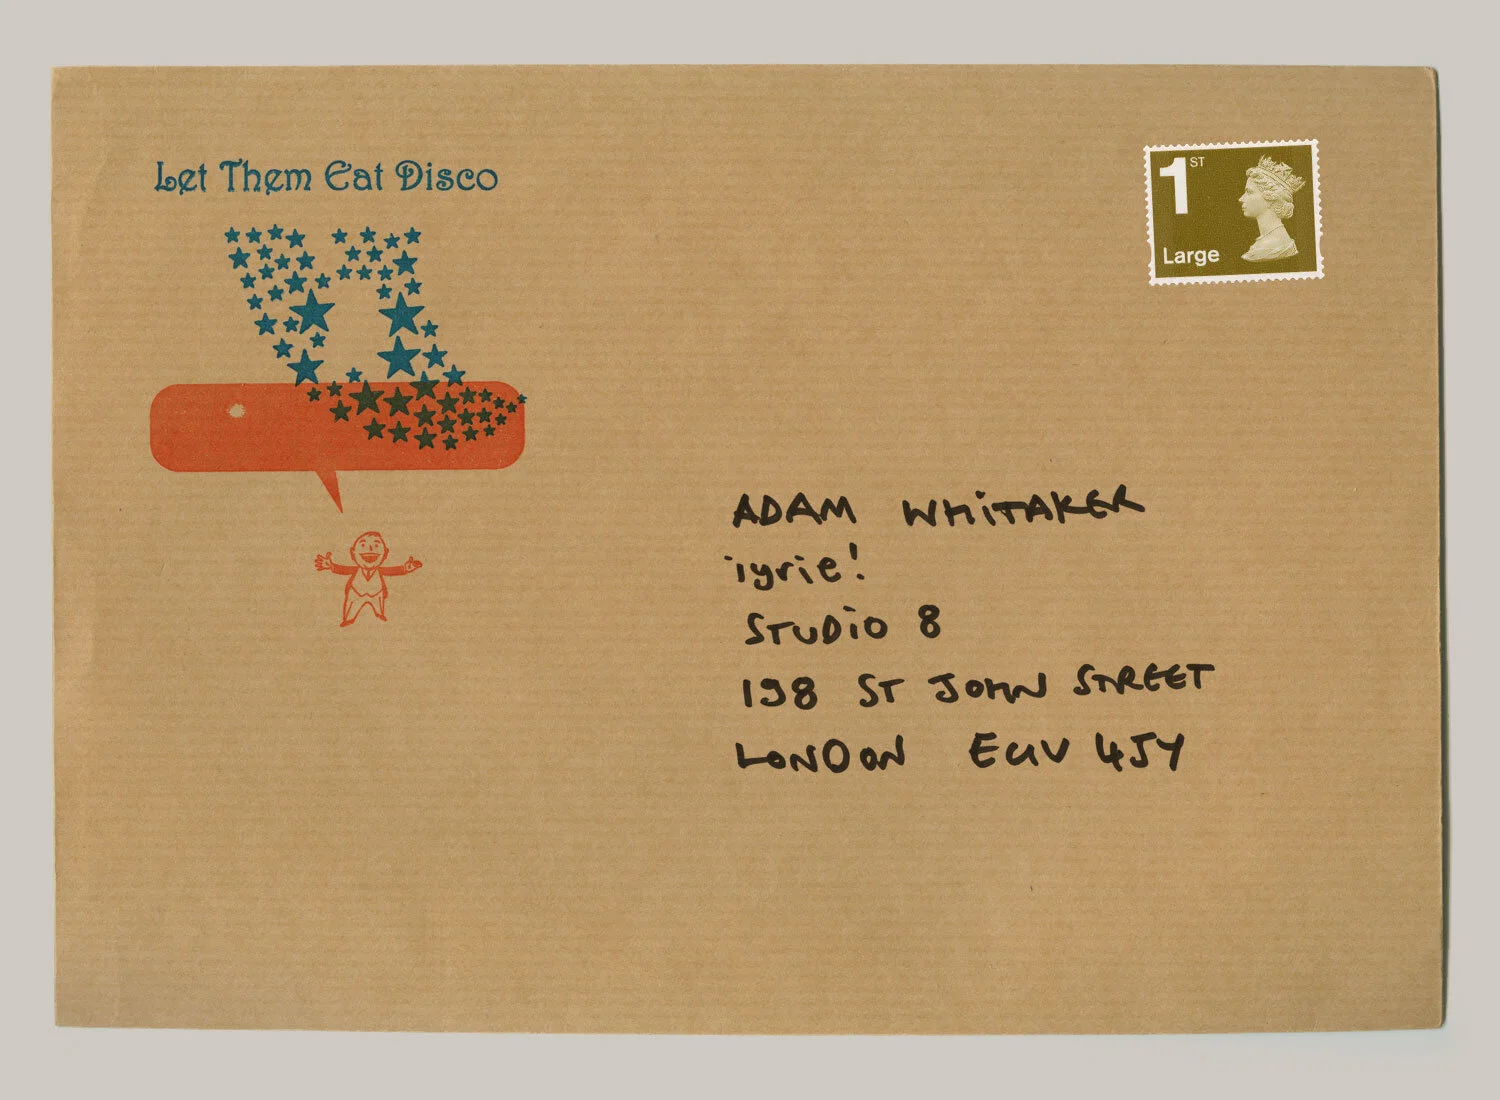 Let Them Eat Disco
1ST
Large
ADAM WHITAKER
iyrie!
STUDIO 8
198 ST JOHN STREET
LONDON EC1V 4JY